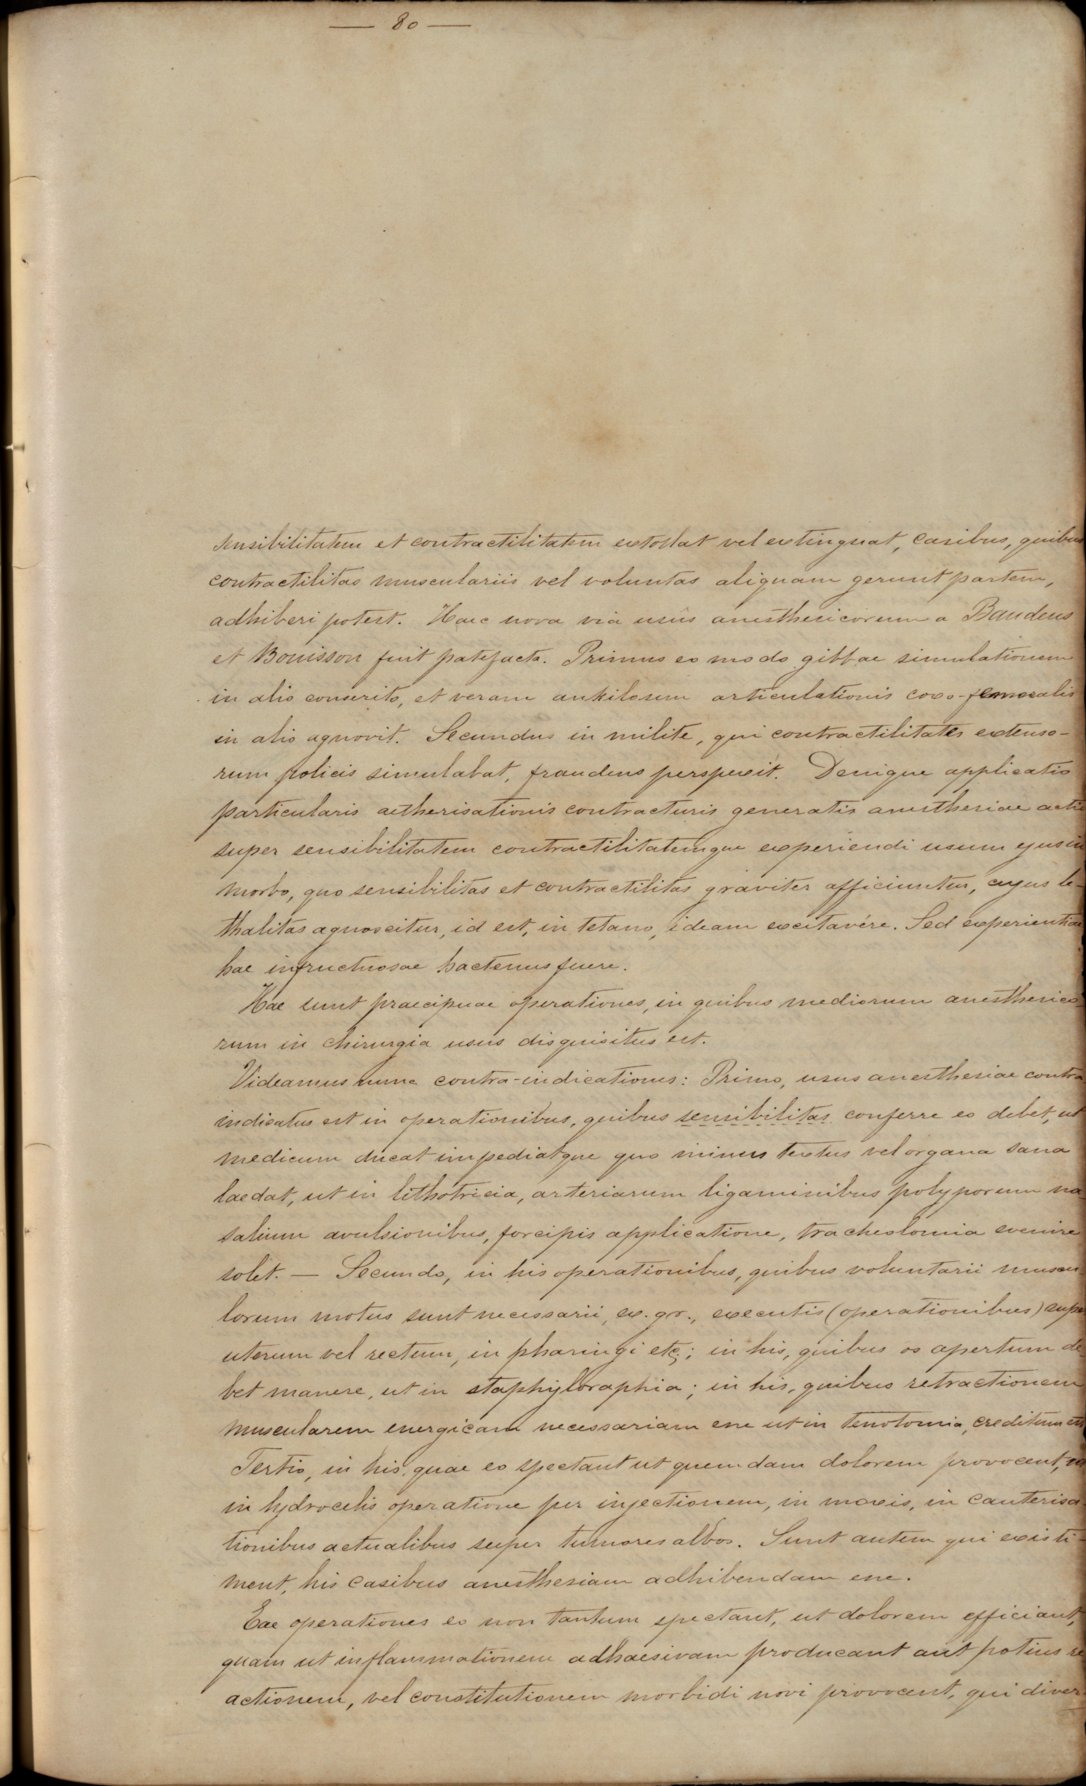 — 80 —
sensibilitatem et contractilitatem extollat vel extinguat, casibus, quibus
contractilitas muscularii s vel voluntas aliquam gerunt partem,
adhiberi potest. Haec nova via usûs anesthesicorum a Baudens
et Bouisson fuit patefacta. Primus eo modo gibbae simulationem
in alio conscrito, et veram ankilosim articulationis coxo-femoralis
in alio agnovit. Secundus in milite, qui contractilitates extenso-
rum policis simulabat, fraudens perspexit. Denique applicatio
particularis aetherisationis contracturis generatis anestheriae actio
super sensibilitatem contractilitatemque experiendi usum ejus in
morbo, quo sensibilitas et contractilitas graviter afficiuntur, cujus le-
thalitas agnoscitur, id est, in tetano, ideam excitavére. Sed experientiae
hae infructuosae hactenus fuere.
Hae sunt praecipuae operationes, in quibus mediorum anesthesico-
rum in chirurgia usus disquisitus est.
Videamus nunc contra-indicationes: Primo, usus anesthesiae contra
indicatus est in operationibus, quibus sensibilitas conferre eo debet, ut
medicum ducat impediatque quo minus textus vel organa sana
laedat, ut in lithotricia, arteriarum ligaminibus polyporum na-
salium avulsionibus, forcipis applicatione, tracheolomia evenire
solet. — Secundo, in his operationibus, quibus voluntarii muscu-
lorum motus sunt necessarii, ex. gr., executis (operationibus) super
uterum vel rectum, in pharingi etc; in his, quibus os apertum de-
bet manere, ut in staphyloraphia; in his, quibus retractionem
muscularem energicam necessariam esse ut in tenotomia, creditum est
Tertio, in his, quae eo spectant ut quemdam dolorem provocent, ut
in hydrocelis operatione per injectionem, in moxis, in cauterisa-
tionibus actualibus super tumores albos. Sunt autem qui existi-
ment, his casibus anesthesiam adhibendam esse.
Eae operationes eo non tantum spectant, ut dolorem efficiant,
quam ut inflammationem adhaesivam producant aut potius re-
actionem, vel constitutionem morbidi novi provocent, qui diver-